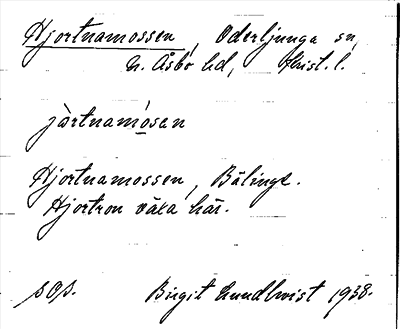 Hjortnamossen, Oderljunga sn,
N. Åsbo hd, Krist. l.
jὰrtnamósan
Hjortnamossen, Bälinge.
Hjortron växa här.
sOp. Birgit Lundkvist 1938.